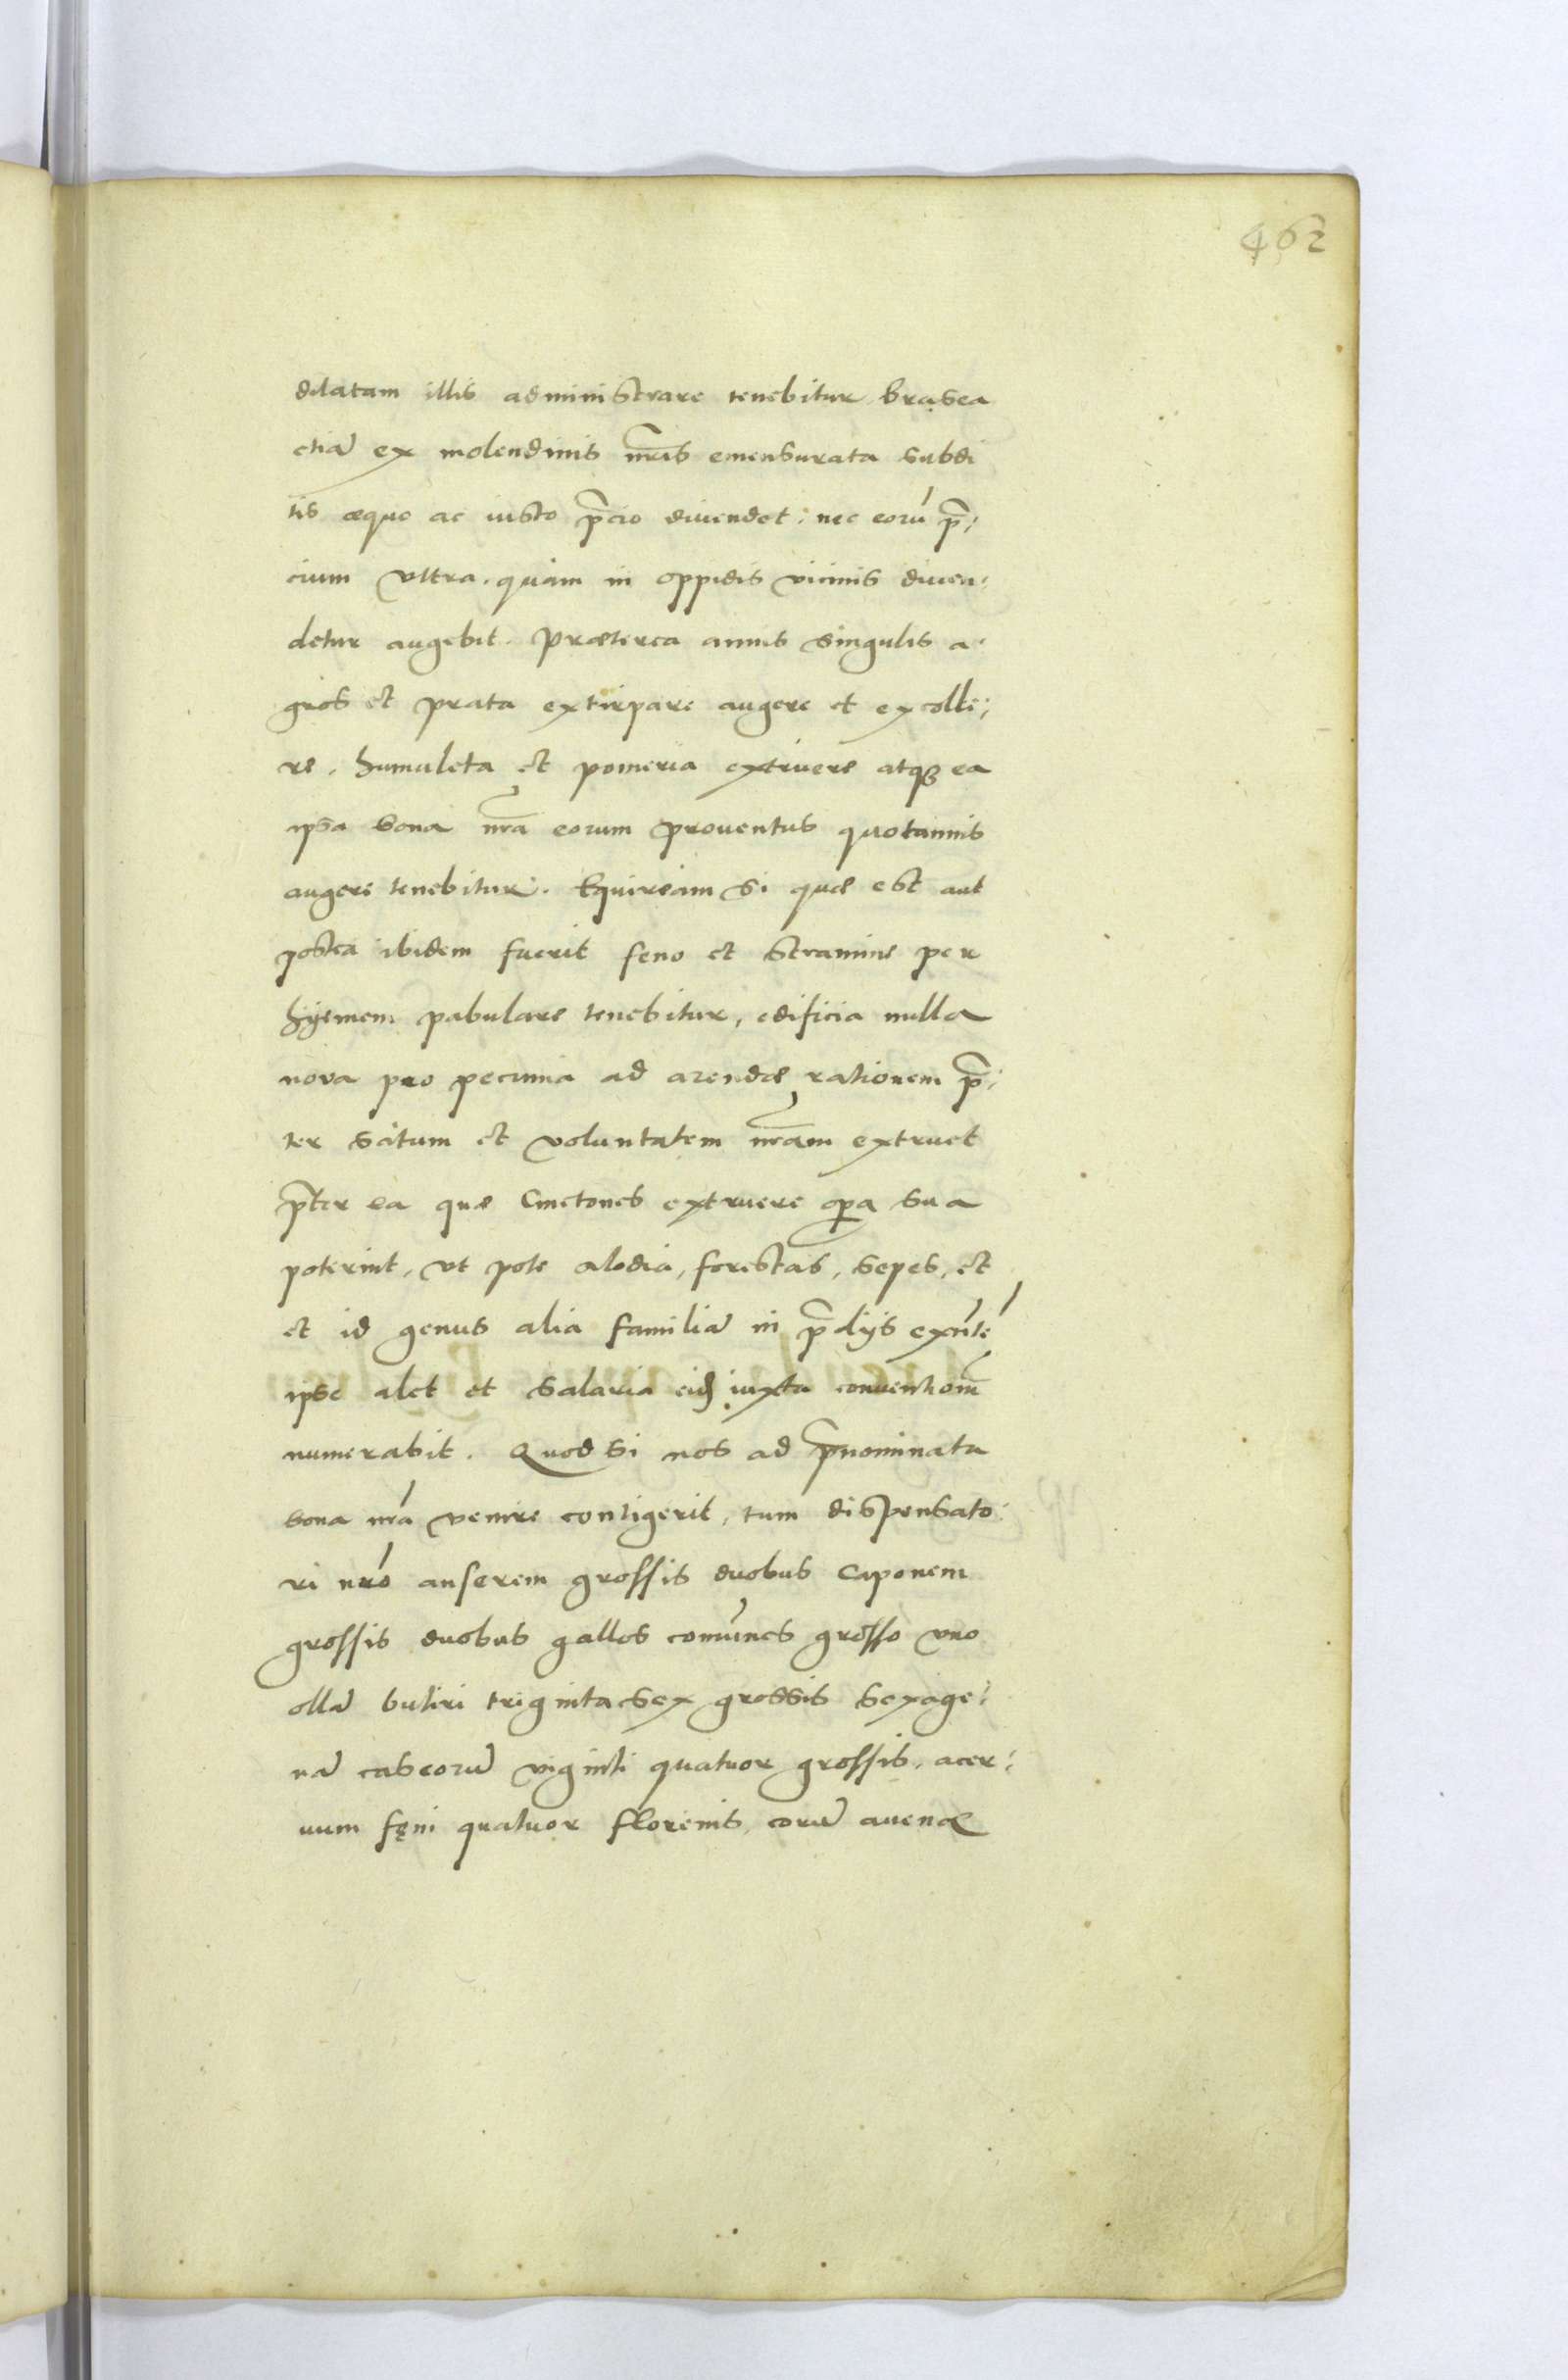 462
dilatam illis administrare tenebitur brasea
etiā ex molendinis nr̄is emensurata subdi
tis æquo ac iusto p̄cio divendet: nec eorū p̄:
cium vltra. quàm in oppidis vicinis diven:
detur augebit. Præterea annis singulis a:
gros et prata extirpare augere et excolle:
re. humuleta et pomeria extruere atq₃ ea
ipsa bona nr̄a eorum proventus quotannis
augere tenebitur. Equiream si quæ est aut
postea ibidem fuerit feno et stramine per
hyemem pabulare tenebitur, edificia nulla
nova pro pecunia ad arendæ rationem p̄:
ter scitum et voluntatem nr̄am extruet
p̄ter ea quæ Cmetones extruere oꝑa sua
poterint, vt pote alodia, forestas, sepes, et
et id genus alia familiā in p̄dijs exn̄tē
ipse alet et salaria eid iuxta conventionē
numerabit. Quod si nos ad p̄nominata
bona nr̄a venire contigerit, tum dispensato:
ri nr̄o anserem grossis duobus Caponem
grossis duobus gallos com̄unes grosso vno
ollā butiri triginta sex grossis sexage:
nā caseorū viginti quatuor grossis. acer:
uum fęni quatuor florenis, corū avenæ